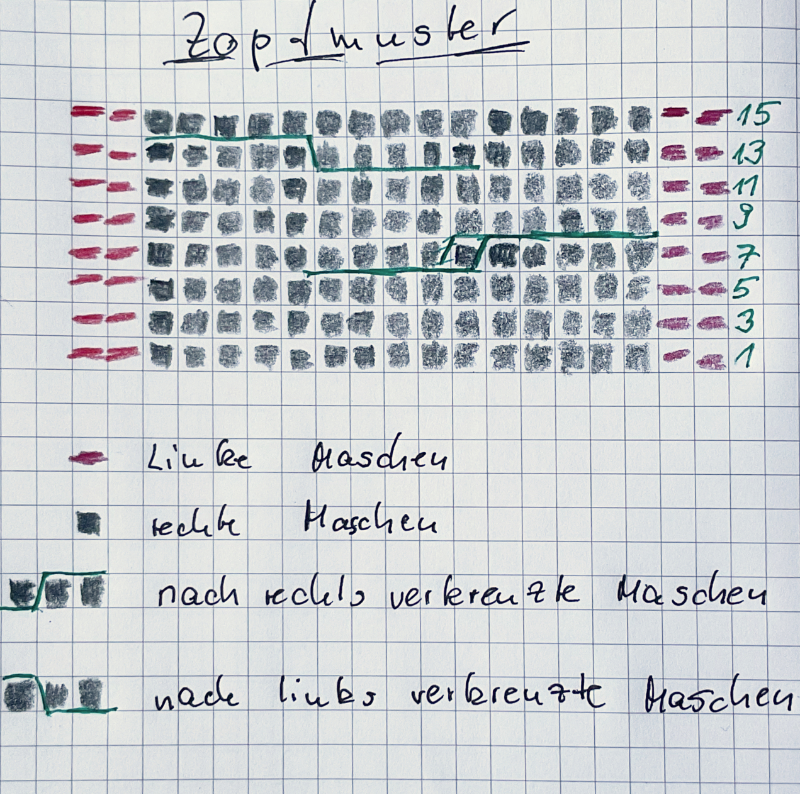 Zopfmuster
15
13
11
9
7
5
3
1
Linke Maschen
rechte Maschen
nach rechts verkreuzte Maschen
nach links verkreuzte Maschen